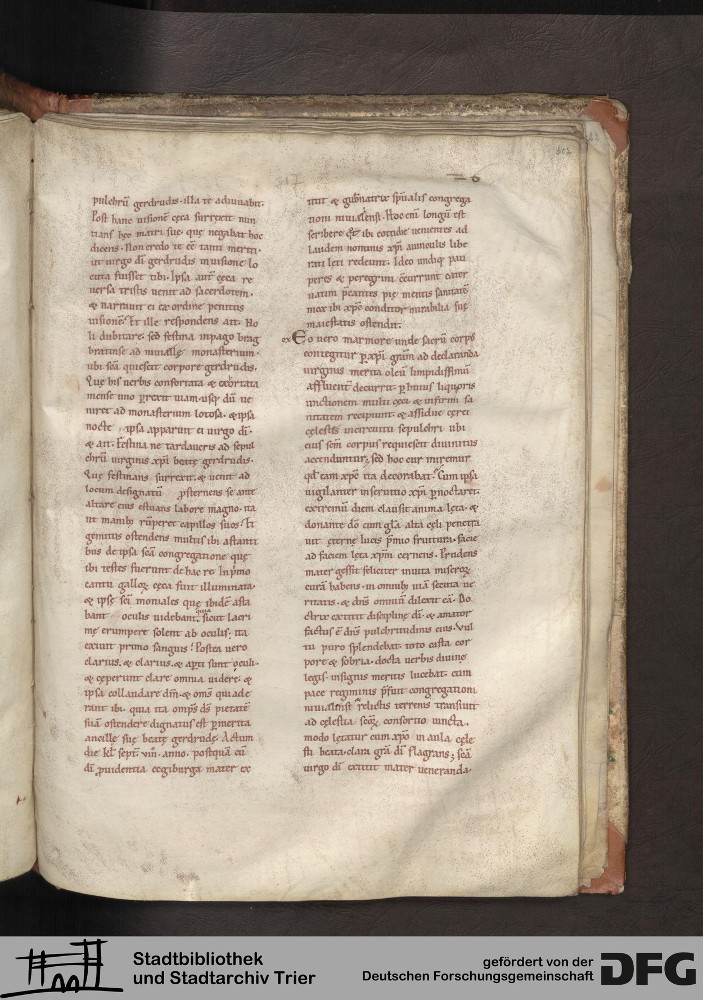 pulchrũ gerdrudis. illa te adiuuabit.
Post hanc uisionẽ cęca surrexit nun
tians hęc matri suę. quę negabat hoc
dicens. Non credo te eẽ tanti meriti.
ut uirgo dĩ gerdrudis in uisione lo
cuta fuisset tibi. Ipsa autẽ cęca re
uersa tristis uenit ad sacerdotem.
& narrauit ei ex ordine penitus
uisionẽ. Et ille respondens ait. No
li dubitare. sed festina in pago brag
bratinse ad niuialẽ monasterium.
ubi scã quiescit corpore gerdrudis.
Quę his uerbis confortata & exortata
mense uno pͥrexit uiam. usq; dũ ue
niret ad monasterium lotosa. & ipsa
nocte ipsa apparuit ei uirgo dĩ.
& ait. Festina ne tardaueris ad sepul
chrũ uirginis xp̃i beatę gerdrudis.
Quę festinans surrexit. & uenit ad
locum designatũ p̃sternens se ante
altare eius estuans labore magno. ita
ut manib; rũperet capillos suos. Et
gemitus ostendens multis ibi astanti
bus de ipsa scã congregatione quę
ibi testes fuerunt de hac re. In p̃mo
cantu galloꝝ cęca fuit illuminata.
& ipsę scĩ moniales quę ibidẽ asta
bant oculis uidebant. quia sicut lacri
mę erumpere solent ab oculis. ita
exiuit primo sanguis. Postea uero
clarius. & clarius. & ap̃ti sunt oculi.
& cęperunt clare omnia uidere. &
ipsa collaudare dñm. & om̃s qui ade
rant ibi. quia ita omp̃s dš pietatẽ
suã ostendere dignatus est p merita
ancillę suę beatę gerdrudę. Actum
die kl̃ sept. viii. anno. postquã cũ
dĩ p̃uidentia ęcgiburga mater ex
titit & gub̃natrix sp̃ualis congrega
tioni niuialensi. Hoc eni longũ est
scribere qd̃ ibi cotidie uenientes ad
laudem nominis xp̃i auinculis libe
rati lęti redeunt. Ideo undiq; pau
peres & peregrini c̃currunt cater
uatim p̃cantes pię mentis sanitatẽ
mox ibi xp̃c conditor mirabilia suę
maiestatis ostendit.
ex Eo uero marmore unde sacrũ corpꝰ
contegitur p xp̃i gr̃am ad declaranda
uirginis merita oleũ limpidissimũ
affluent̃ decurrit. p huius liquoris
unctionem multi cęci & infirmi sa
nitatem recipiunt. & assidue cęrei
cęlestes in circuitu sepulchri ubi
eius scm̃ corpus requiescit diuinitus
accenduntur. sed hoc cur miremur
qđ eam xp̃c ita decorabat. Cum ipsa
uigilanter in seruitio xp̃i p̃noctaret.
extremũ diem clausit anima lęta. &
donante dõ cum gl̃a alta cęli penetra
uit ęternę lucis p̃mio fruitura. facie
ad faciem lęta xp̃m cernens. Prudens
mater gessit feliciter inuita miseroꝝ
curã habens. in omnib; uiã secuta ue
ritatis. & dñs omniũ dilexit eã. Do
ctrix extitit disciplinę dĩ. & amator
factus ẽ dñs pulchritudinis eius. Vul
tu puro splendebat. toto casta cor
pore & sobria. docta uerbis diuinę
legis. insignis meritis lucebat. cum
pace regiminis p̃fuit congregationi
niuialensi. relictis terrenis transiuit
ad cęlestia. scõꝝ consortio iuncta.
modo lętatur cum xp̃o in aula cęle
sti beata. clara gr̃a dĩ flagrans; scã
uirgo dĩ extitit mater ueneranda.
Stadtbibliothek
und Stadtarchiv Trier
gefördert von der
Deutschen Forschungsgemeinschaft
DFG